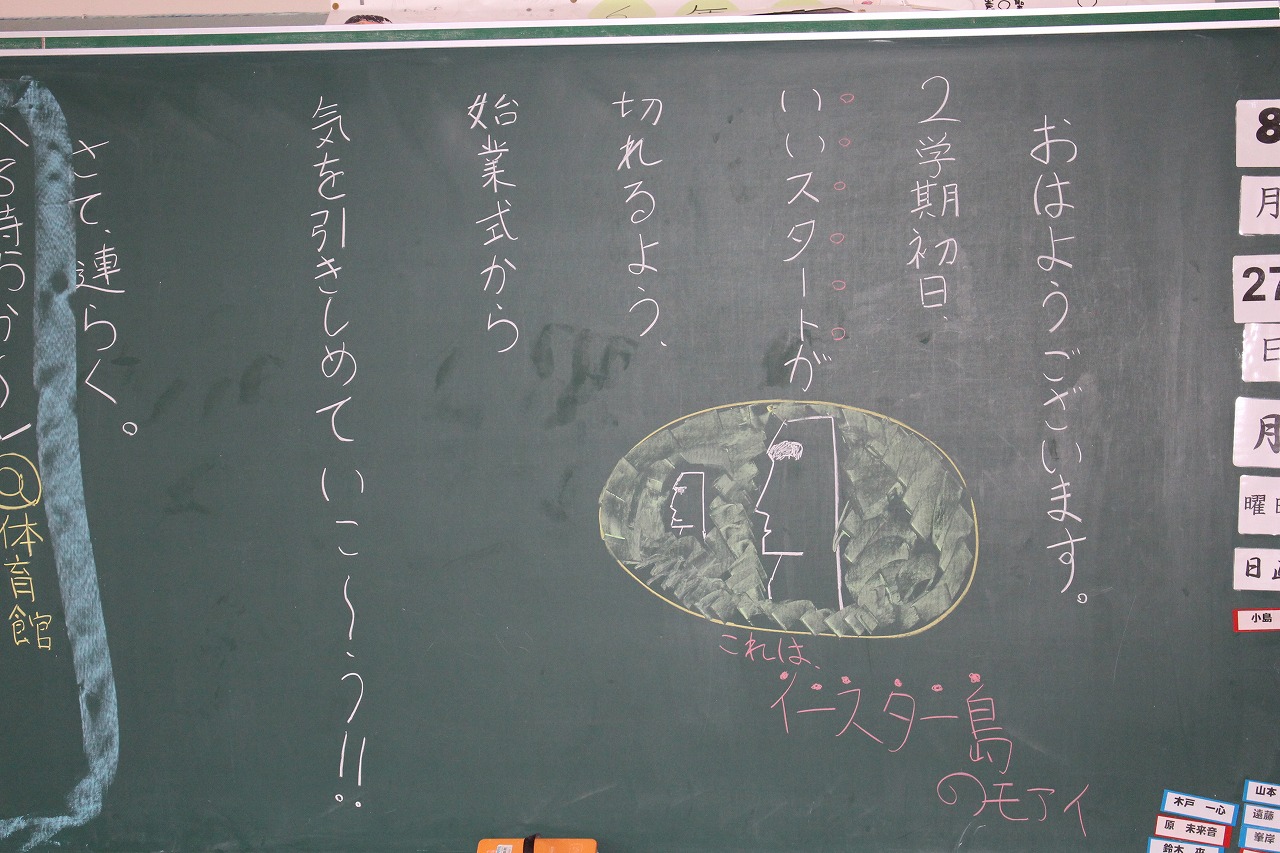 8
月
27
日
月
曜日
小島
おはようございます。
2学期初日、
いいスタートが
切れるよう、
始業式から
気を引きしめていこ〜う!!
さて、連らく。
体育館
これは、
イースター島
のモアイ
木戸 一心
原 未来音
鈴木
山本
遠藤
峯岸